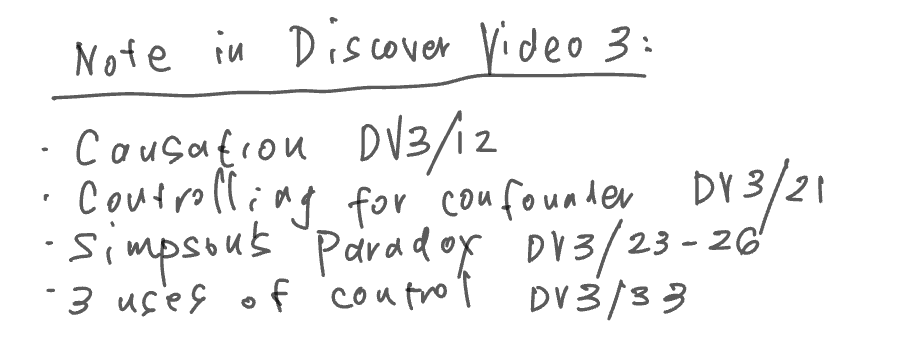 Note in Discover Video 3:
· Causation DV3/12
· Controlling for confounder DV3/21
· Simpson's Paradox DV3/23-26
- 3 uses of control DV3/33